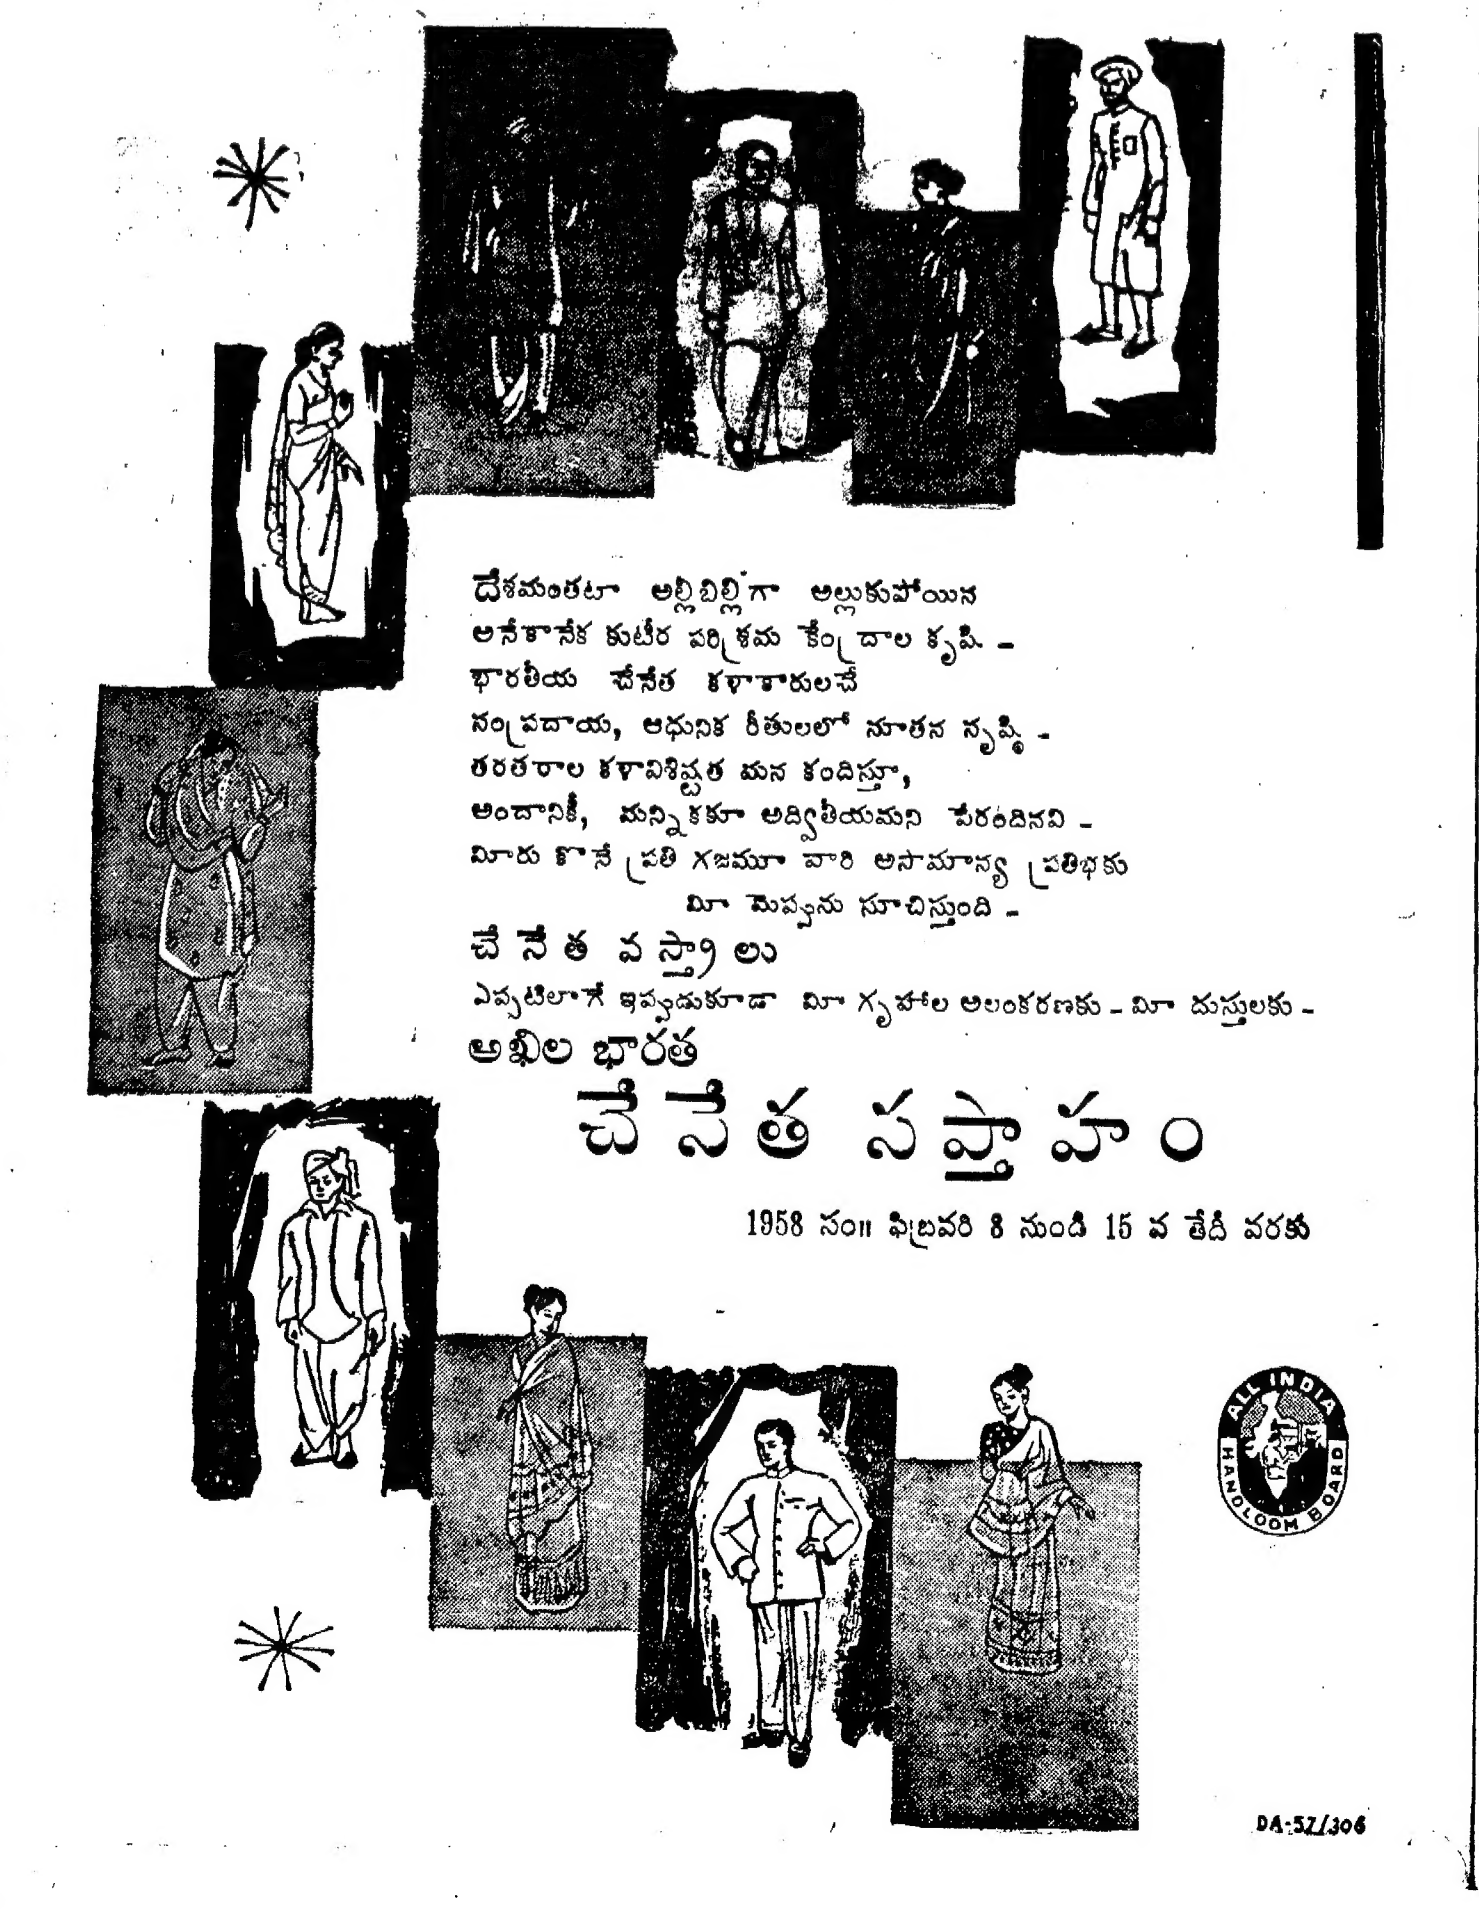 దేశమంతటా అల్లిబిల్లిగా అల్లుకుపోయిన
అనేకానేక కుటీర పరిశ్రమ కేంద్రాల కృషి -
భారతీయ చేనేత కళాకారులచే
సంప్రదాయ, ఆధునిక రీతులలో నూతన సృష్ఠి -
తరతరాల కళావిశిష్టత మన కందిస్తూ,
అందానికీ, మన్నికకూ అద్వితీయమని పేరందినవి -
మీరు కొనే ప్రతి గజమూ వారి అసామాన్య ప్రతిభకు
మీ మెప్పును సూచిస్తుంది -
చేనేత వస్త్రాలు
ఎప్పటిలాగే ఇప్పుడుకూడా మీ గృహాల అలంకరణకు - మీ దుస్తులకు -
అఖిల భారత
చేనేత సప్తాహం
1958 సం॥ ఫిబ్రవరి 8 నుండి 15 వ తేదీ వరకు
ALL INDIA
HANDLOOM BOARD
DA-57/306